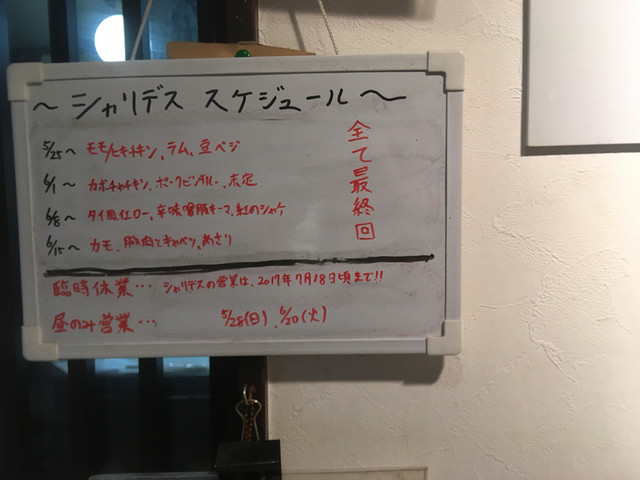 ～シャリデス スケジュール～
5/25～ モモ/ヒキチキン、ラム、豆ベジ
6/1～ カボチャチキン、ポークビンダルー、未定
6/8～ タイ風イエロー、辛味噌豚キーマ、紅のシャケ
6/15～ カモ、豚肉とキャベツ、あさり
全て最終回
臨時休業… シャリデスの営業は、2017年7月18日頃まで!!
昼のみ営業… 5/28(日)、6/20(火)